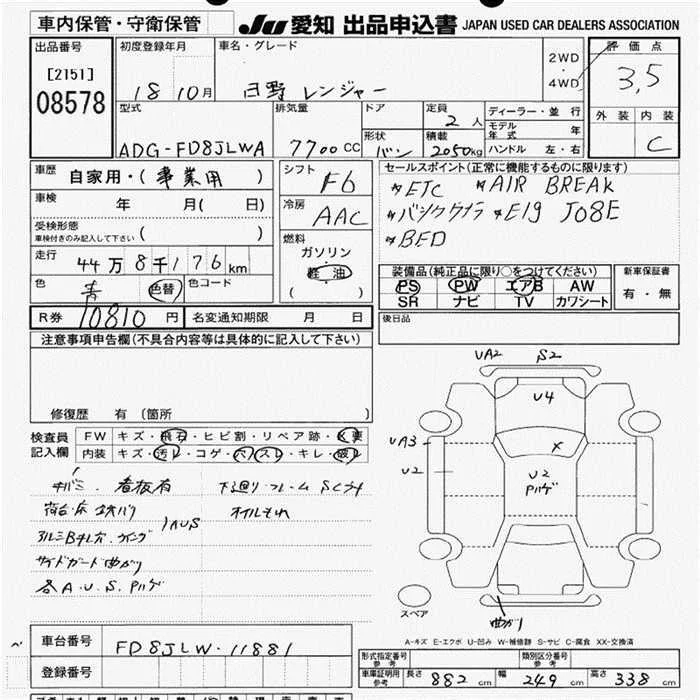 車内保管・守衛保管
JU 愛知 出品申込書 JAPAN USED CAR DEALERS ASSOCIATION
出品番号
[2151]
08578
初度登録年月
18 10月
車名・グレード
日野 レンジャー
2WD
・
4WD
評価点
3,5
外装 内装
C
型式
ADG-FD8JLWA
排気量
7700 CC
ドア
形状
バン
定員
2 人
積載
2050kg
ディーラー・並行
モデル年式 年
ハンドル 左・右
車歴 自家用・(事業用)
車検 年 月( 日)
受検形態
車検付きのみ記入して下さい ( )
走行 44万8千176km
色 青 色替 色コード
シフト
F6
冷房
AAC
燃料
ガソリン
・
軽油
( )
セールスポイント(正常に機能するものに限ります)
*ETC *AIR BREAK
*バックカメラ *E19 J08E
*BED
装備品(純正品に限り○をつけてください)
PS PW エアB AW
SR ナビ TV カワシート
新車保証書
有・無
R券 10810 円 名変通知期限 月 日
後日品
注意事項申告欄(不具合内容等は具体的に記入して下さい)
修復歴 有(箇所 )
検査員
記入欄
FW キズ・飛石・ヒビ割・リペア跡・X要
内装 キズ・汚レ・コゲ・穴・スレ・キレ・破レ
看板有 下廻り・フレーム Sくフ4
荷台・床 鉄バリ オイルもれ
アルミBキレカ・ウイング 1AUS
サイドガード曲がり
各A.U.S.Pハゲ
UA2 S2
U4
UA3
U2
X
U2
Pハゲ
曲がり
スペア
A-キズ E-エクボ U-凹み W-補修跡 S-サビ C-腐食 XX-交換済
車台番号 FD8JLW-11881
登録番号
形式指定番号
参考
類別区分番号
参考
車庫証明用
参考
長さ 882 cm 幅 249 cm 高さ 338 cm